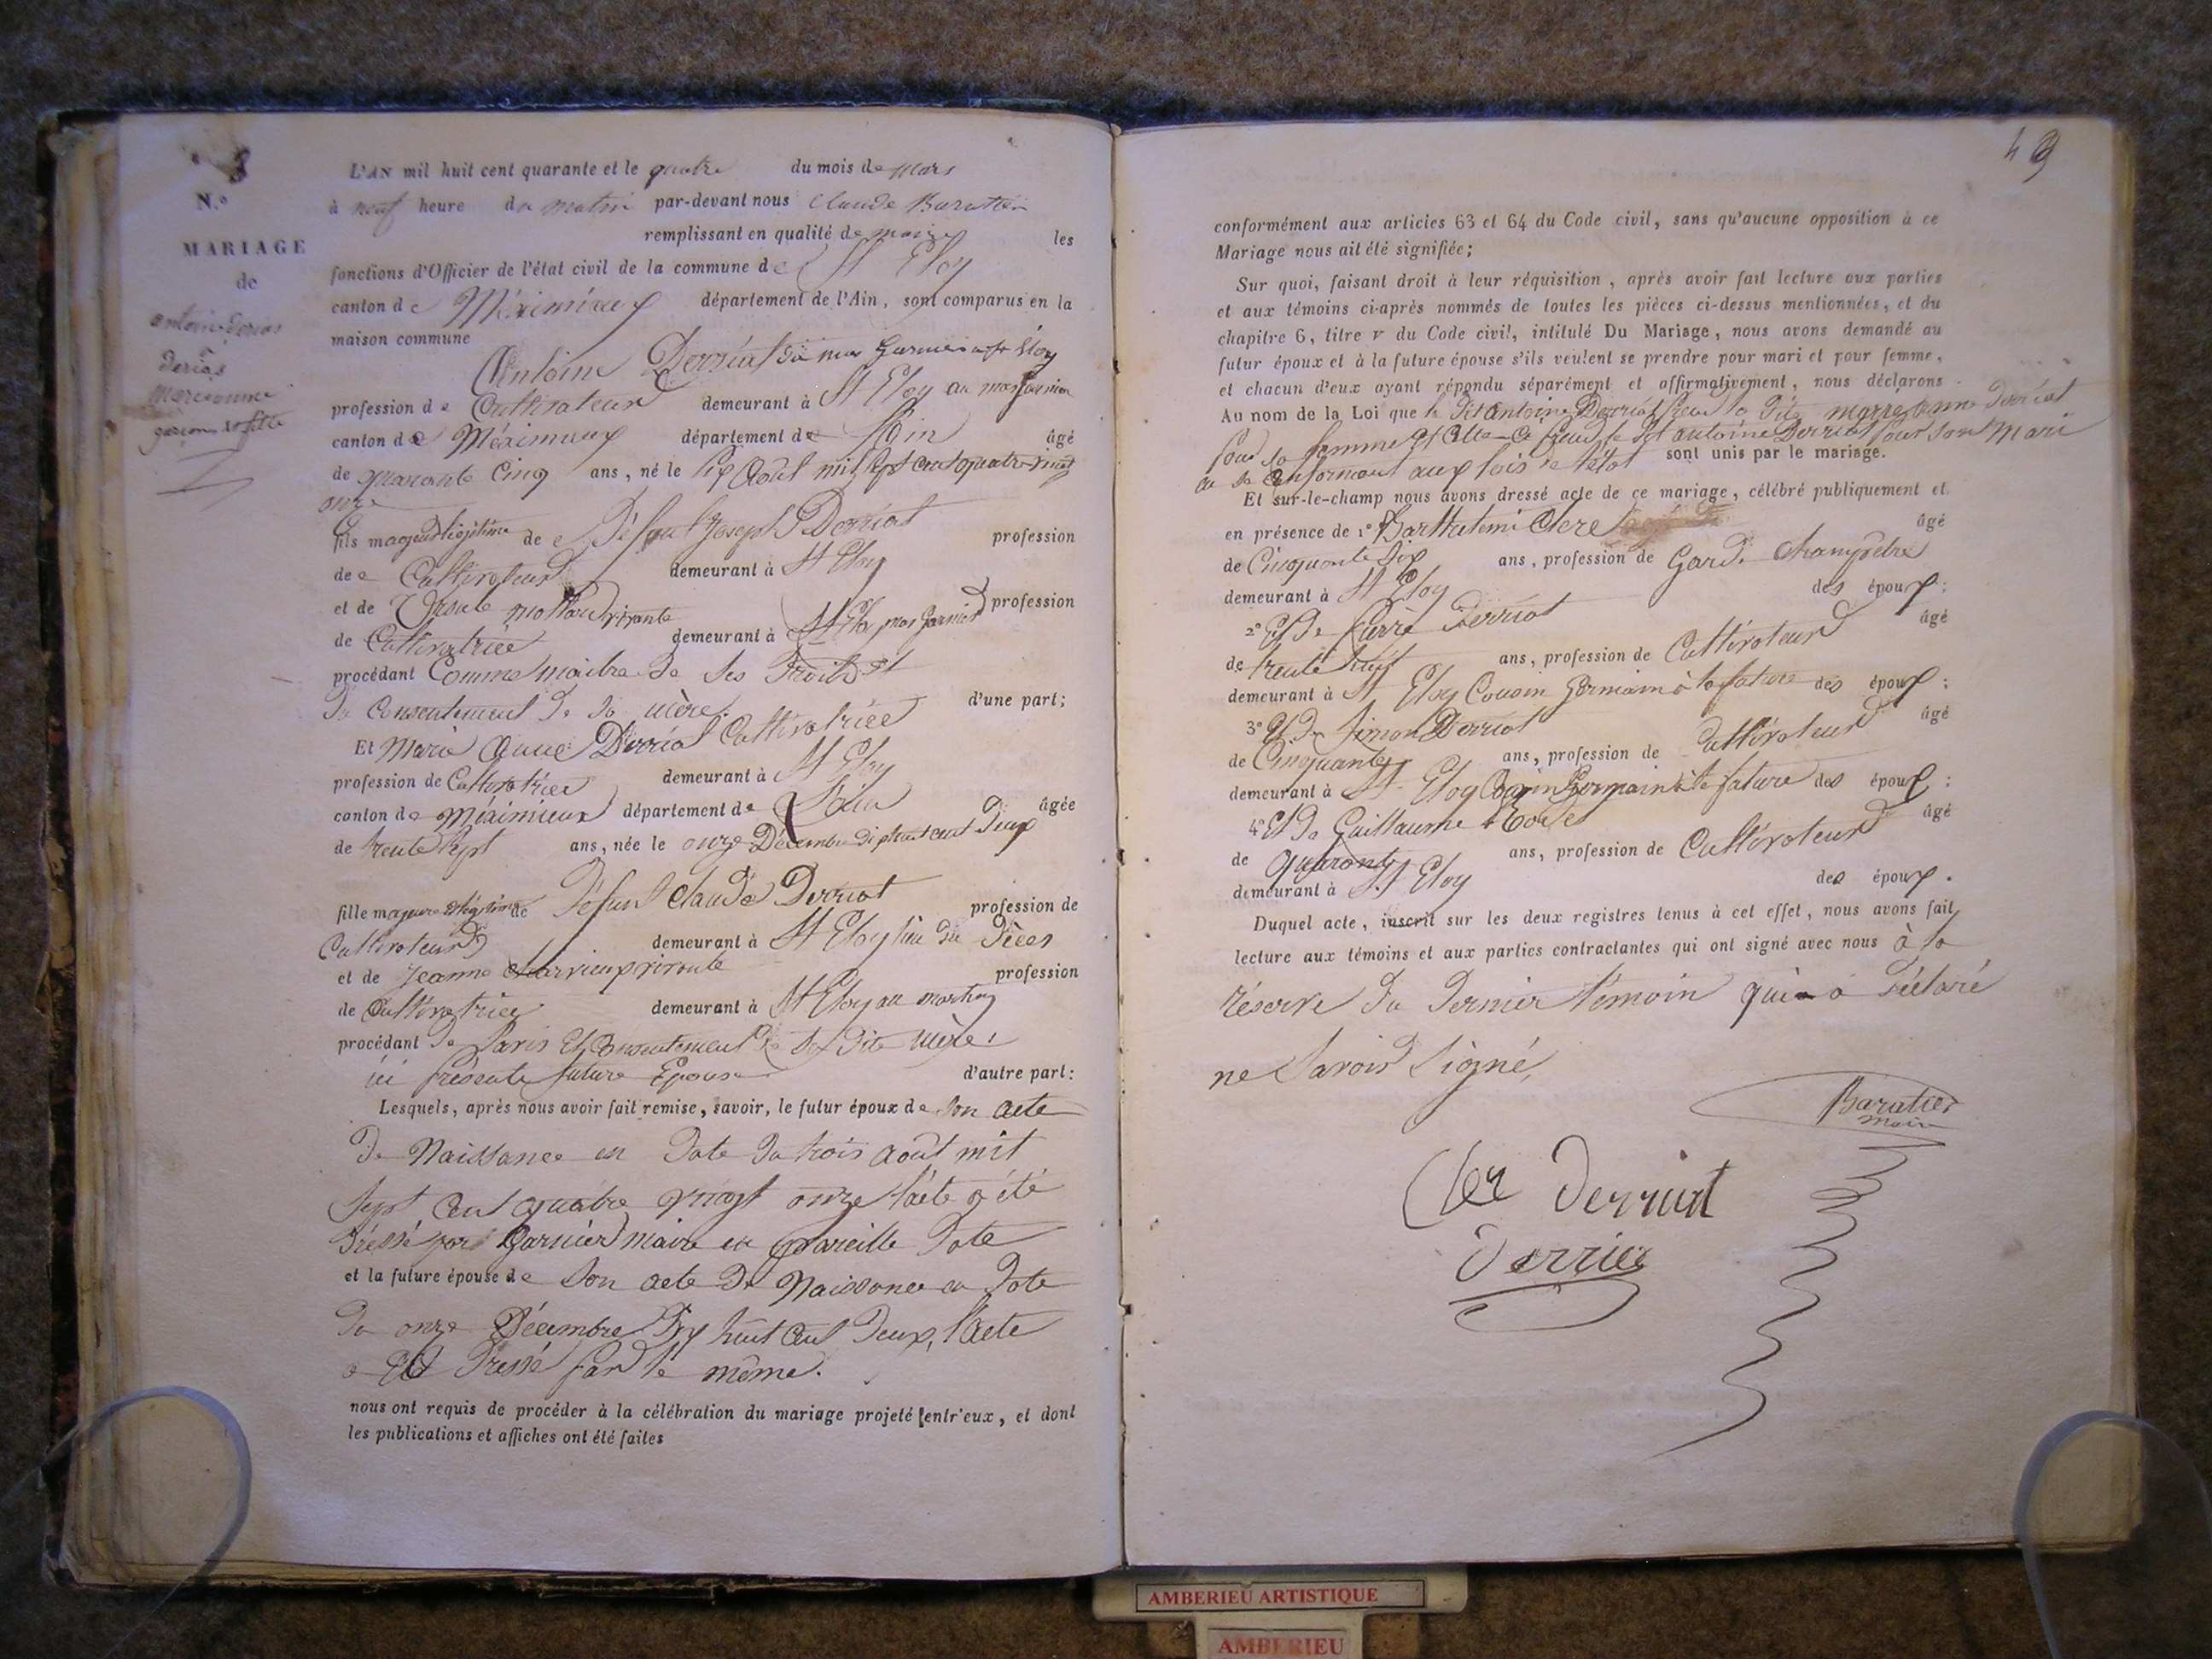 N.o
MARIAGE
de
antoine derias
à
derias
marieanne
garcon et fille
L'AN mil huit cent quarante et le quatre du mois de mars
à neuf heure du matin par-devant nous Claude Baratier
remplissant en qualité de maire les
fonctions d'Officier de l'état civil de la commune de St Eloy
canton de Méximieux département de l'Ain, sont comparus en la
maison commune
Antoine Derriat du mas Garnier a st Eloy
profession de Cultivateur demeurant à St Eloy au mas Garnier
canton de Méximieux département de l'Ain âgé
de quarante Cinq ans, né le Août mil sept cent quatre vingt
onze
fils majeur et légitime de Défunt Joseph Derriat profession
de Cultivateur demeurant à St Eloy
et de Ursule vivante profession
de Cultivatrice demeurant à St Eloy mas Garnier
procédant Comme maitre de ses Droits et
du Consentement de sa mère. d'une part;
Et Marie Anne Derriat Cultivatrice
profession de Cultivatrice demeurant à St Eloy
canton de Méximieux département de l'ain âgée
de trente sept ans, née le onze Décembre dix huit cent Deux
fille majeure et légitime de Défunt Claude Derriat profession de
Cultivateur demeurant à St Eloy lieu du
et de Jeanne Charvieux vivante profession
de Cultivatrice demeurant à St Eloy au
procédant de l'avis et Consentement de sa Dite Mère
ici présente future Epouse d'autre part:
Lesquels, après nous avoir fait remise, savoir, le futur époux de son acte
De Naissance en Date du trois août mil
sept Cent quatre vingt onze l'acte a été
Dressé par Garnier maire en pareille Date
et la future épouse de son acte de Naissance en Date
du onze Décembre Dix huit Cent Deux, l'acte
a été Dressé par le même.
nous ont requis de procéder à la célébration du mariage projeté entr'eux, et dont
les publications et affiches ont été faites
49
conformément aux articles 63 et 64 du Code civil, sans qu'aucune opposition à ce
Mariage nous ait été signifiée;
Sur quoi, faisant droit à leur réquisition, après avoir fait lecture aux parties
et aux témoins ci-après nommés de toutes les pièces ci-dessus mentionnées, et du
chapitre 6, titre v du Code civil, intitulé Du Mariage, nous avons demandé au
futur époux et à la future épouse s'ils veulent se prendre pour mari et pour femme,
et chacun d'eux ayant répondu séparément et affirmativement, nous déclarons
Au nom de la Loi que le Dit Antoine Derriat prend la Dite marie anne Derriat
pour sa femme et Elle Ce prend le Dit antoine Derriat pour son Mari
en se Conformant aux lois de l'état sont unis par le mariage.
Et sur-le-champ nous avons dressé acte de ce mariage, célébré publiquement et
en présence de 1° Barthelemi Clere âgé
de Cinquante Six ans, profession de Garde Champêtre
demeurant à St Eloy des époux:
2° Et De Pierre Derriat âgé
de trente huit ans, profession de Cultivateur
demeurant à St Eloy Cousin Germain à la future des époux:
3° Et De Simon Derriat âgé
de Cinquante ans, profession de Cultivateur
demeurant à St Eloy Cousin Germain à la future des époux:
4° Et De Guillaume âgé
de quarante ans, profession de Cultivateur
demeurant à St Eloy des époux.
Duquel acte, inscrit sur les deux registres tenus à cet effet, nous avons fait
lecture aux témoins et aux parties contractantes qui ont signé avec nous à la
réserve du Dernier témoin qui a Déclaré
ne Savoir Signé,
Baratier
maire
Cler Derriat
Derrias
AMBERIEU ARTISTIQUE
AMBERIEU